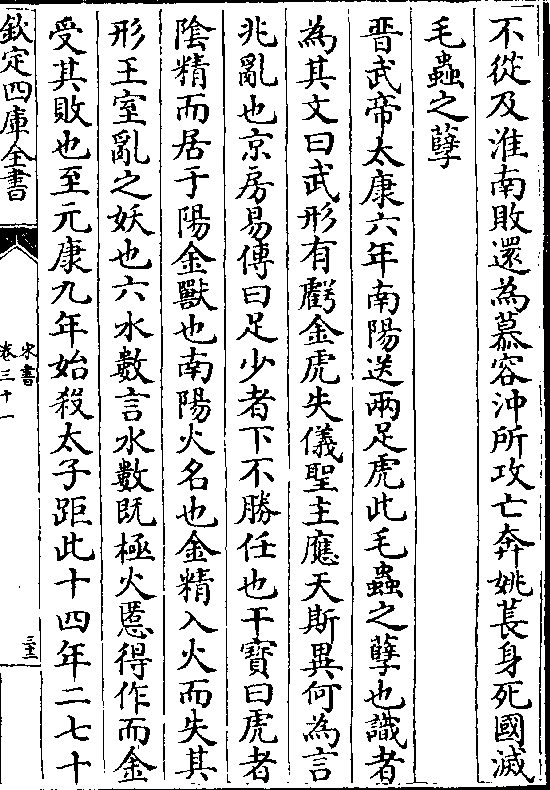 不從及淮南敗還為慕容沖所攻亡奔姚萇身死國滅
毛蟲之孽
晋武帝太康六年南陽送兩足虎此毛蟲之孽也識者
為其文曰武形有虧金虎失儀聖主應天斯異何為言
兆亂也京房易傳曰足少者下不勝任也干寶曰虎者
陰精而居于陽金獸也南陽火名也金精入火而失其
形王室亂之妖也六水數言水數既極火慝得作而金
受其敗也至元康九年始殺太子距此十四年二七十
欽定四庫全書
宋書
卷三十一
三十三